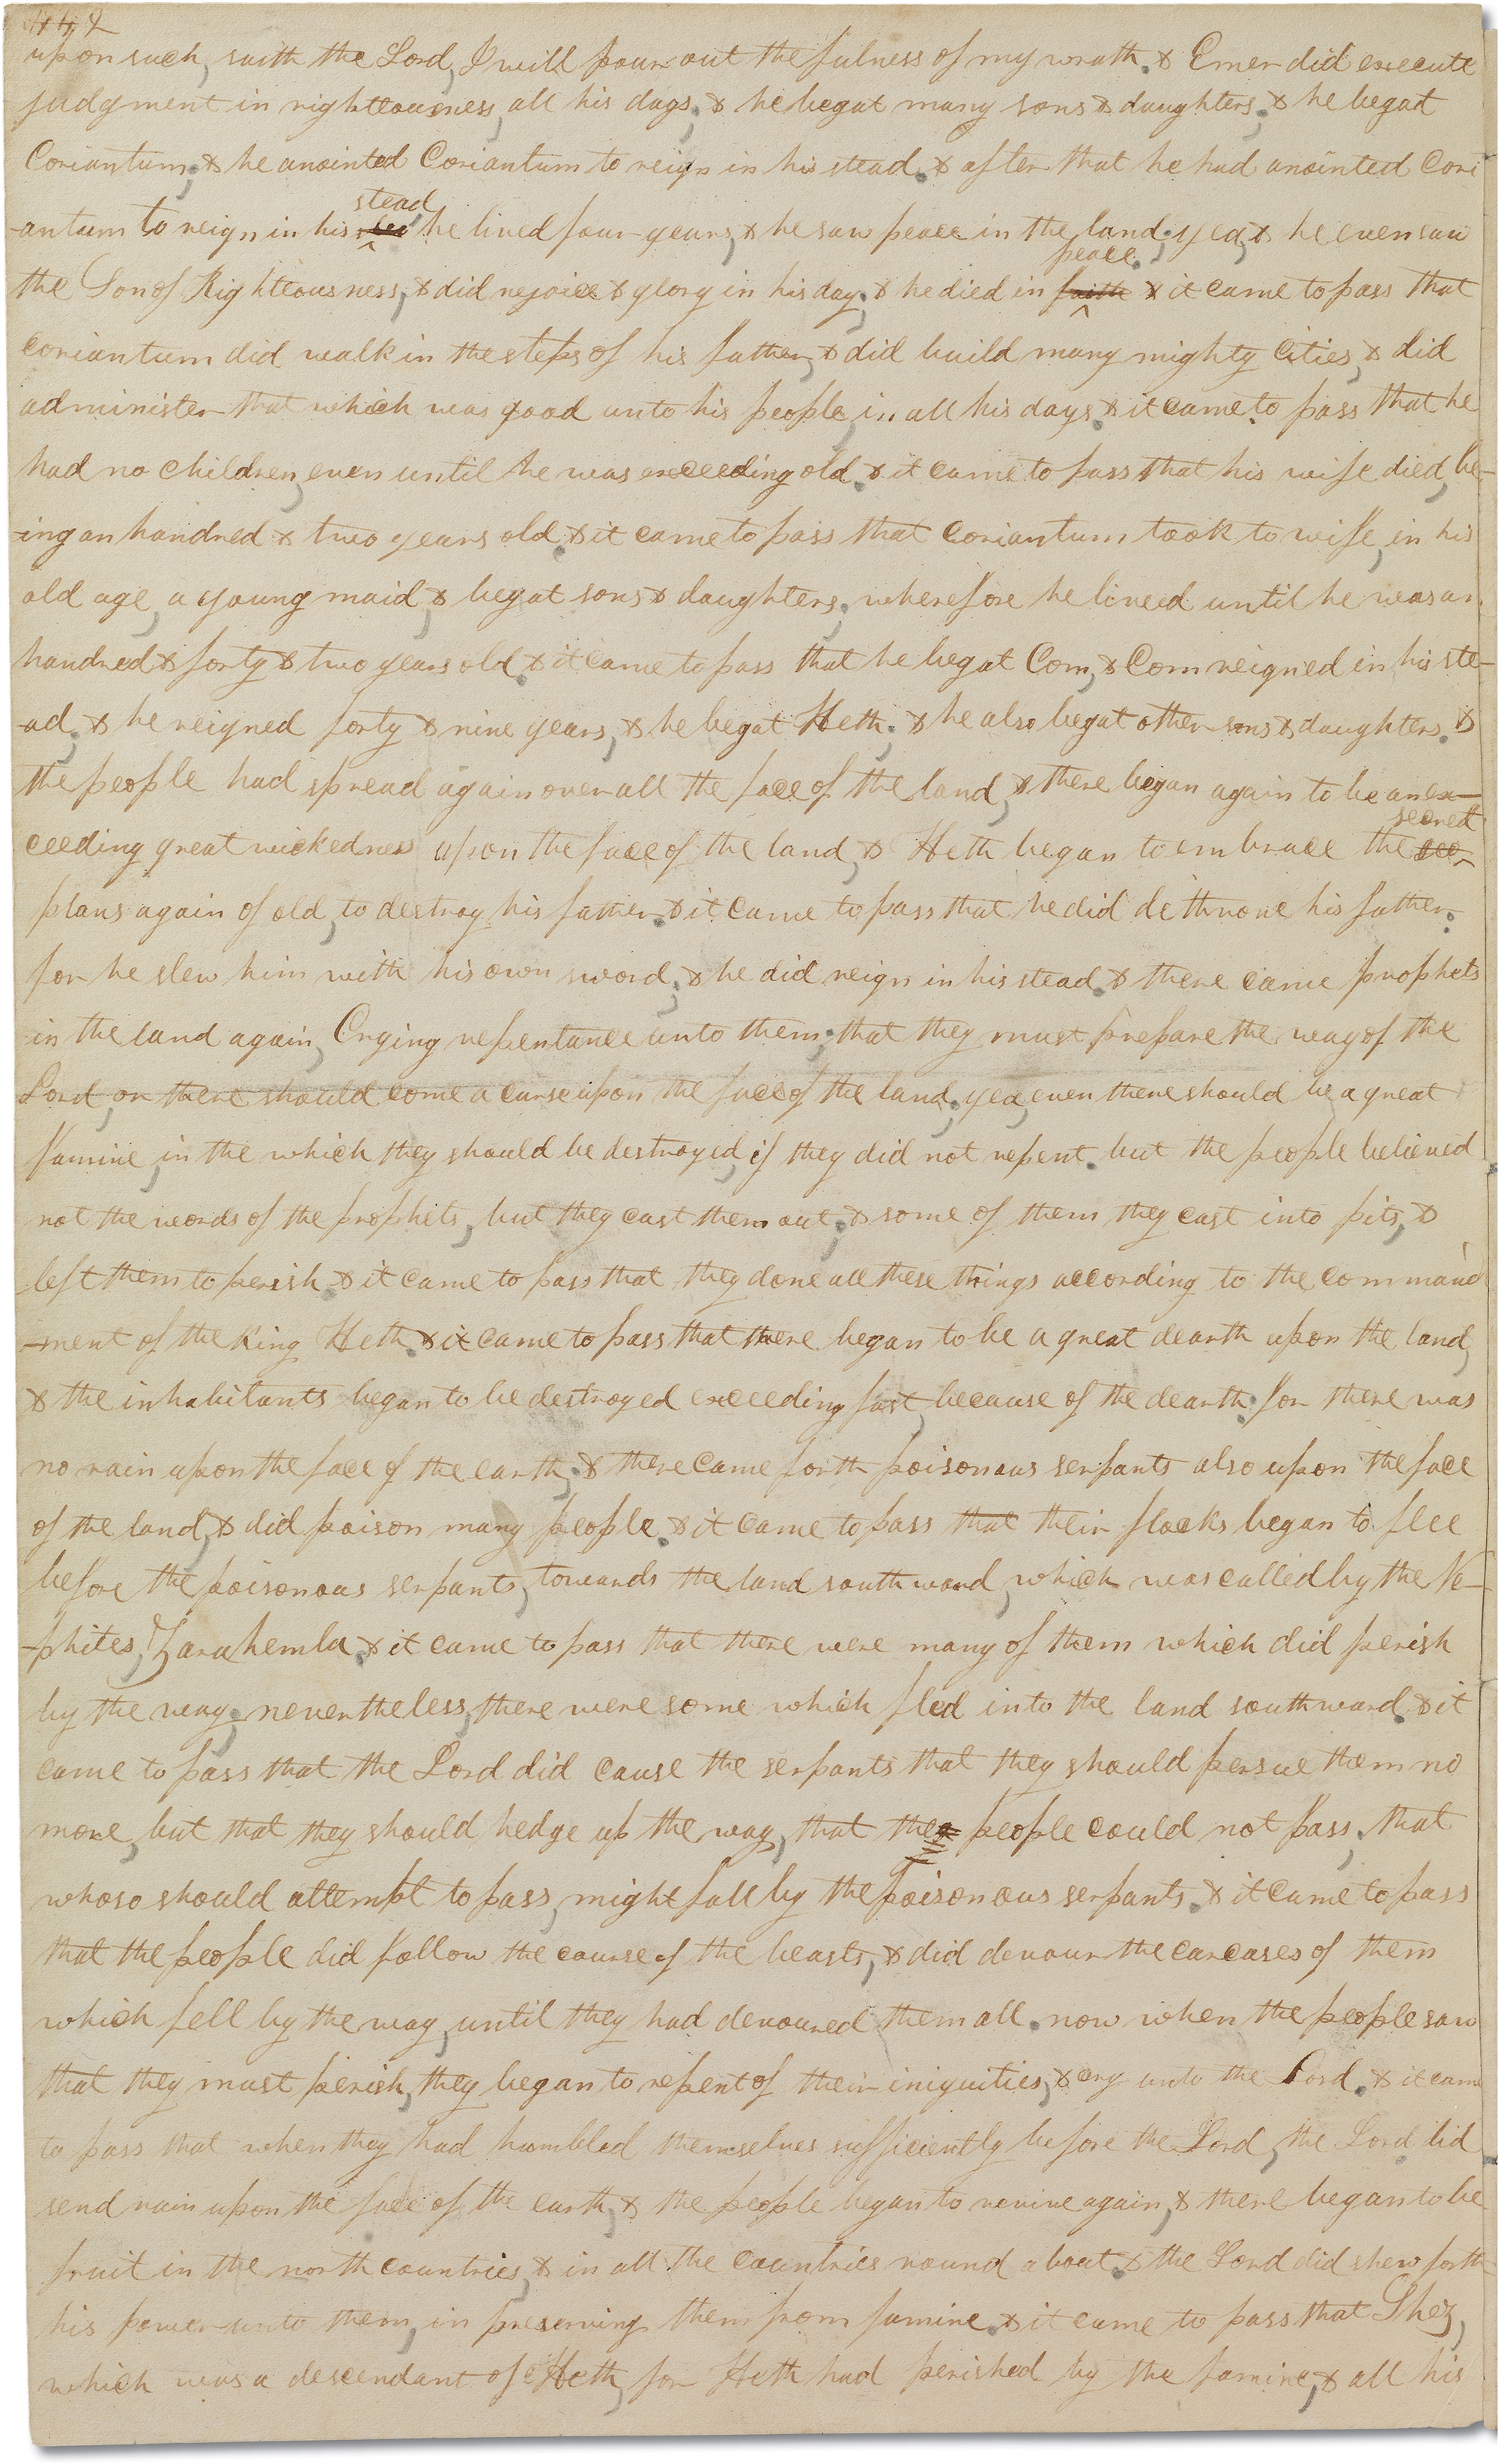 442
upon such, saith the Lord, I will pour out the fulness of my wrath. & Emer did execute
judgment in righteousness, all his days; & he begat many sons & daughters; & he begat
Coriantum; & he anointed Coriantum to reign in his stead. & after that he had anointed Cori
stead
-antum to reign in his he lived four years, & he saw peace in the land; yea, & he even saw
peace.
the Son of Righteousness, & did rejoice & glory in his day; & he died in faith & it came to pass that
Coriantum did walk in the steps of his father, & did build many mighty cities, & did
administer that which was good unto his people, in all his days. & it came to pass that he
had no children, even until he was exceeding old. & it came to pass that his wife died, be-
-ing an hundred & two years old. & it came to pass that Coriantum took to wife, in his
old age, a young maid, & begat sons & daughters; wherefore he lived until he was an
hundred & forty & two years old. & it came to pass that he begat Com, & Com reigned in his ste-
-ad; & he reigned forty & nine years, & he begat Heth; & he also begat other sons & daughters. &
the people had spread again over all the face of the land, & there began again to be an ex-
secret
ceeding great wickedness upon the face of the land, & Heth began to embrace the sec
plans again of old, to destroy his father. & it came to pass that he did dethrone his father;
for he slew him with his own sword; & he did reign in his stead. & there came prophets
in the land again, Crying repentance unto them; that they must prepare the way of the
Lord, or there should come a curse upon the face of the land; yea, even there should be a great
famine, in the which they should be destroyed, if they did not repent. but the people believed
not the words of the prophets, but they cast them out; & some of them they cast into pits, &
left them to perish. & it came to pass that they done all these things according to the command
-ment of the King Heth. & it came to pass that there began to be a great dearth upon the land,
& the inhabitants began to be destroyed exceeding fast, because of the dearth; for there was
no rain upon the face of the earth; & there came forth poisonous serpants also upon the face
of the land, & did poison many people. & it came to pass that their flocks began to flee
before the poisonous serpants, towards the land southward, which was called by the Ne-
-phites, Zarahemla. & it came to pass that there were many of them which did perish
by the way; nevertheless, there were some which fled into the land southward. & it
came to pass that the Lord did cause the serpants that they should persue them no
more, but that they should hedge up the way, that the people could not pass; that
whoso should attempt to pass, might fall by the poisonous serpants. & it came to pass
that the people did follow the course of the beasts, & did devour the carcases of them
which fell by the way, until they had devoured them all. now when the people saw
that they must perish, they began to repent of their iniquities, & cry unto the Lord. & it came
to pass that when they had humbled themselves sufficiently before the Lord, the Lord did
send rain upon the face of the earth, & the people began to revive again, & there began to be
fruit in the north countries, & in all the countries round about. & the Lord did shew forth
his power unto them, in preserving them from famine. & it came to pass that Shez,
which was a descendant of Heth, for Heth had perished by the famine, & all his